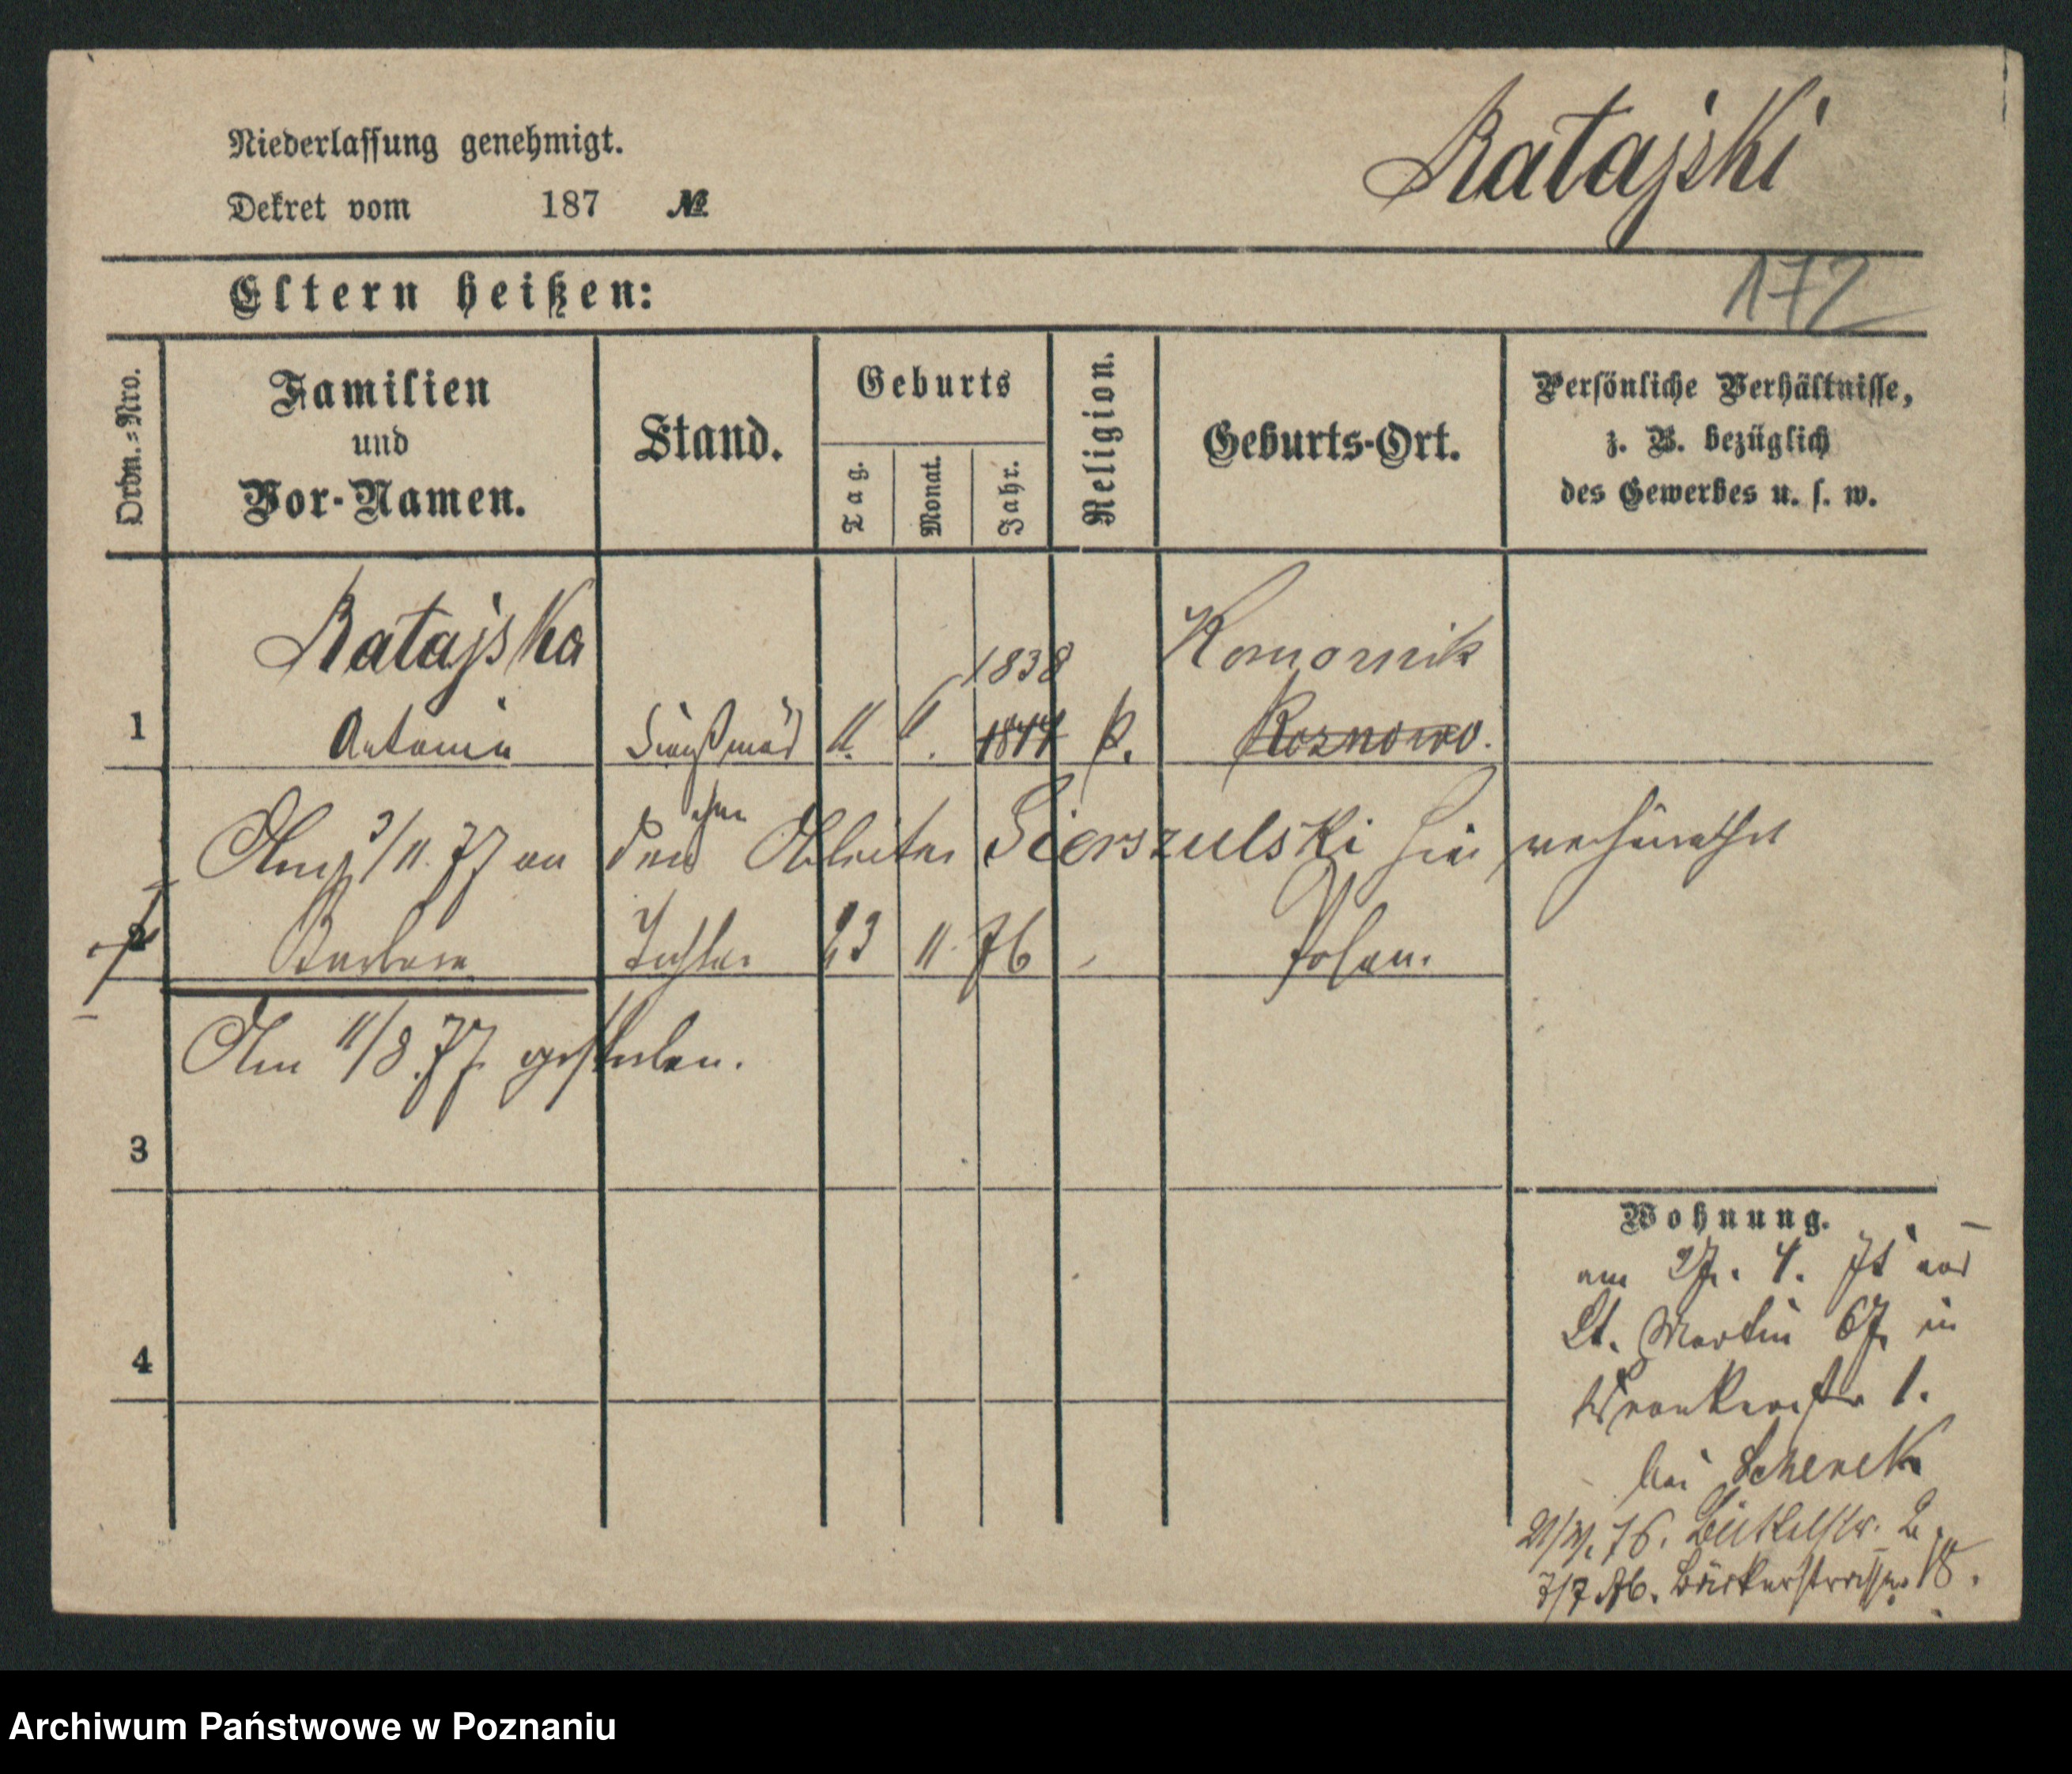 Niederlassung genehmigt.
Dekret vom 187 №
Ratajski
172
Eltern heißen:
Ordn.=Nro.
Familien und Vor-Namen.
Stand.
Geburts
Tag.
Monat.
Jahr.
Religion.
Geburts-Ort.
Persönliche Verhältnisse,
z. B. bezüglich
des Gewerbes u. s. w.
Ratajska
1838
Komornik
1
Antonia
11.
1844
k.
Rosnowo.
ehm
Am 3/11. 77 an den Arbeiter Sierszulski hier verheirathet
2
Barbara
Tochter
23
11.
76
Posen.
Am 11/8. 77 gestorben.
3
4
Wohnung.
am 27. 4. 75 aus
St. Martin 67 in
Krämerstr 1.
bei Schenck
76. Büttelstr. 2.
7/7 76. Bäckerstrasse 18.
Archiwum Państwowe w Poznaniu